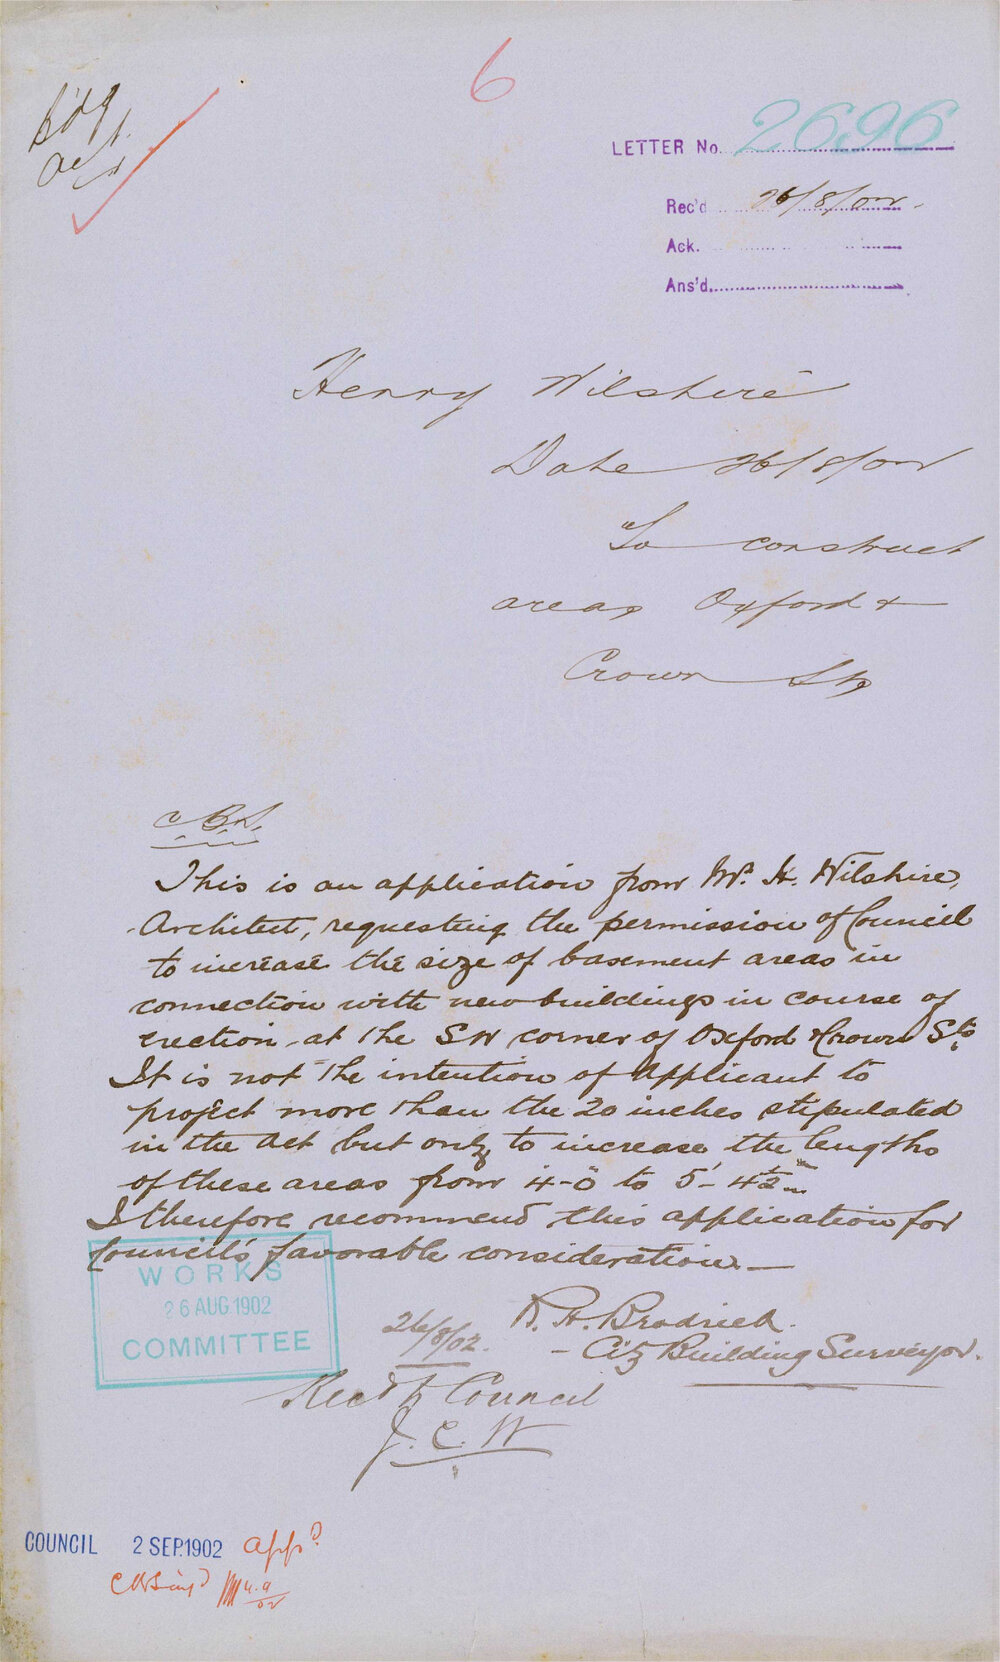 6
B'dg
Act
LETTER No. 2696
Rec'd 26/8/02
Ack.
Ans'd
Henry Wilshire
Date 26/8/02
To construct
areas Oxford &
Crown Sts
C B S.
This is an application from Mr. H. Wilshire,
Architect, requesting the permission of Council
to increase the size of basement areas in
connection with new buildings in course of
erection at the SW corner of Oxford & Crown Sts.
It is not the intention of Applicant to
project more than the 20 inches stipulated
in the Act but only to increase the lengths
of these areas from 4'-0" to 5'-4½"
I therefore recommend this application for
Council's favorable consideration.—
R. H. Brodrick.
26/8/02.
- City Building Surveyor.
WORKS
26 AUG. 1902
COMMITTEE
Rec'd to Council
J. C. W
COUNCIL 2 SEP. 1902 appd
CBS infd 4.9
02